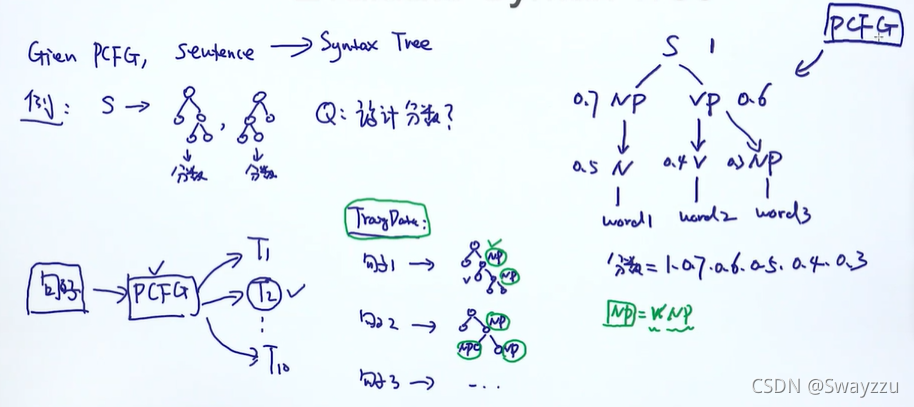 Gien PCFG, sentence → Syntax Tree
例: S →
,
分数 分数
Q: 设计分数?
PCFG
S 1
0.7 NP VP 0.6
0.5 N 0.4 V 0.3 NP
word1 word2 word3
分数 = 1·0.7·0.6·0.5·0.4·0.3
NP = V NP
句子 → PCFG
T1
T2
T10
句子1 →
NP
NP
句子2 →
NP
NP
句子3 → ...
CSDN @Swayzzu